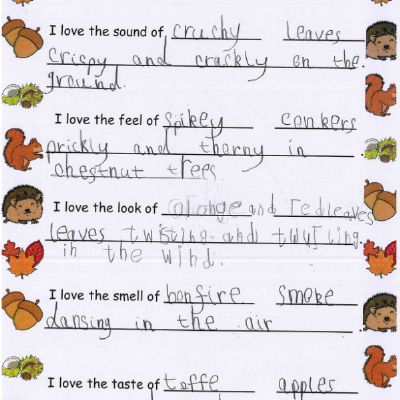 I love the sound of cruchy leaves
Crispy and crackly on the
ground.
I love the feel of Spikey conkers
prickly and thorny in
chestnut trees
I love the look of orange and red leaves
leaves twisting and twirling.
in the wind.
I love the smell of bonfire smoke
dansing in the air
I love the taste of toffe apples